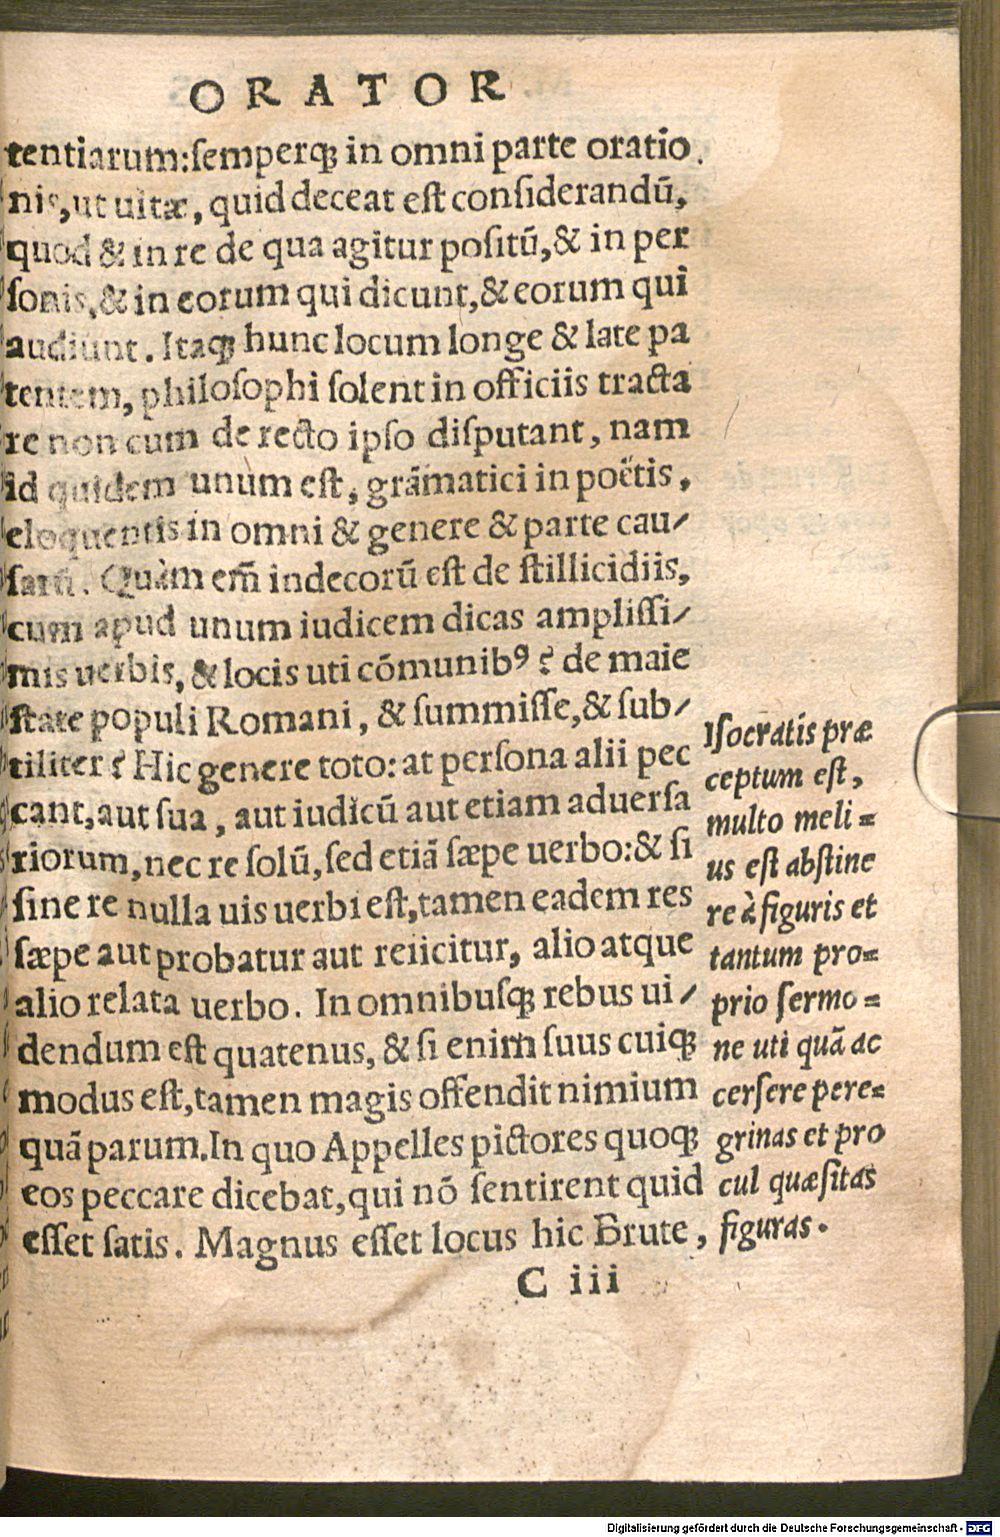 ORATOR
tentiarum:ſemperq; in omni parte oratio
nis,ut uitæ, quid deceat eſt conſiderandū,
quod & in re de qua agitur poſitū,& in per
ſonis,& in eorum qui dicunt,& eorum qui
audiunt. Itaq; hunc locum longe & late pa
tentem, philoſophi ſolent in officiis tracta
re non cum de recto ipſo diſputant, nam
id quidem unum eſt, grāmatici in poëtis,
eloquentis in omni & genere & parte cau/
ſarū. Quàm em̄ indecorū eſt de ſtillicidiis,
cum apud unum iudicem dicas ampliſſi/
mis uerbis, & locis uti cōmunibꝰ? de maie
ſtate populi Romani, & ſummiſſe,& ſub/
tiliter? Hic genere toto: at perſona alii pec
cant,aut ſua, aut iudicū aut etiam aduerſa
riorum,nec re ſolū,ſed etiā ſæpe uerbo:& ſi
ſine re nulla uis uerbi eſt,tamen eadem res
ſæpe aut probatur aut reiicitur, alio atque
alio relata uerbo. In omnibuſq; rebus ui/
dendum eſt quatenus, & ſi enim ſuus cuiq;
modus eſt,tamen magis offendit nimium
quā parum.In quo Appelles pictores quoq;
eos peccare dicebat,qui nō ſentirent quid
eſſet ſatis. Magnus eſſet locus hic Brute,
C iii
Iſocratis præ
ceptum eſt,
multo meli=
us eſt abſtine
re à figuris et
tantum pro=
prio ſermo=
ne uti quā ac
cerſere pere=
grinas et pro
cul quæſitas
figuras.
Digitalisierung gefördert durch die Deutsche Forschungsgemeinschaft - DFG